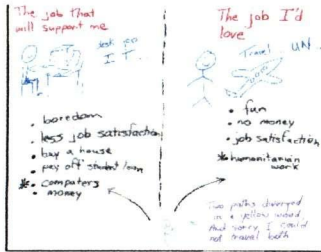 The job that
will support me
desk job
I.T.
• boredom
• less job satisfaction
• buy a house
• pay off student loan
* • computers
• money
The job I'd
love
Travel
UN.
• fun
• no money
• job satisfaction
* humanitarian
work
Two paths diverged
in a yellow wood
And sorry I could
not travel both